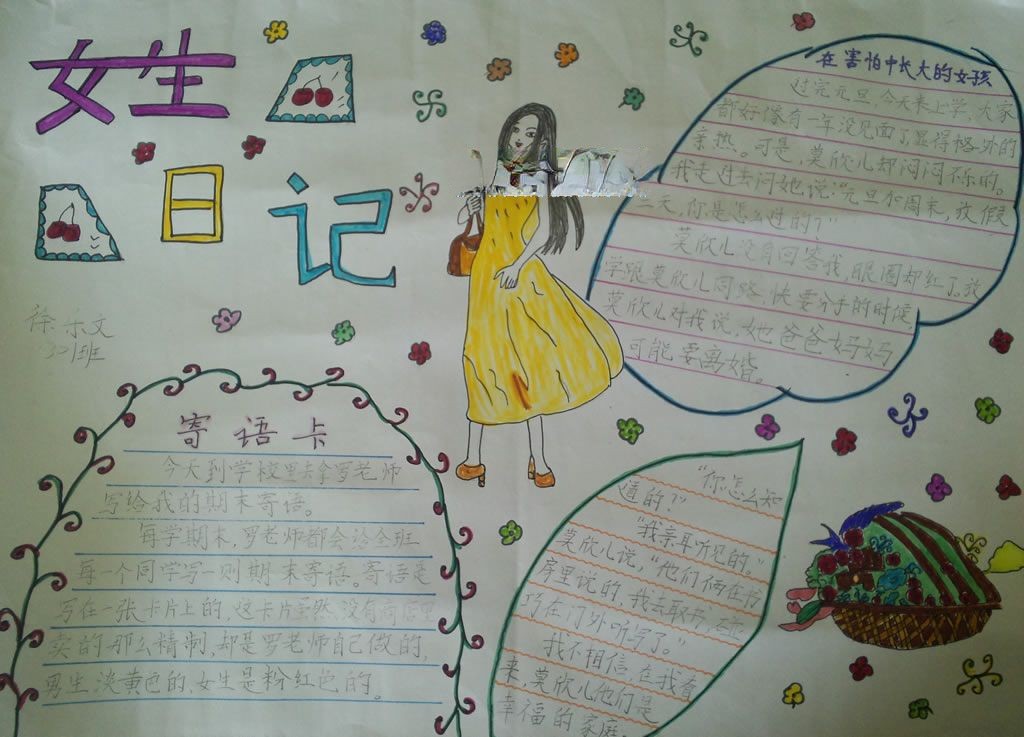 女生
日记
徐乐文
301班
寄语卡
今天到学校里去拿罗老师
写给我的期末寄语。
每学期末,罗老师都会给全班
每一个同学写一则期末寄语。寄语是
写在一张卡片上的,这卡片虽然没有商店里
卖的那么精制,却是罗老师自己做的,
男生淡黄色的,女生是粉红色的。
在害怕中长大的女孩
过完元旦,今天来上学,大家
都好像有一年没见面了,显得格外的
亲热。可是,莫欣儿却闷闷不乐的。
我走过去问她,说:"元旦个周末,放假
三天,你是怎么过的?"
莫欣儿没有回答我,眼圈却红了,放
学跟莫欣儿同路,快要分手的时候,
莫欣儿对我说,她爸爸妈妈
可能要离婚。
"你怎么知
道的?"
"我亲耳听见的,"
莫欣儿说,"他们俩在书
房里说的,我去取书,碰
巧在门外听写了。"
我不相信,在我看
来,莫欣儿他们是
幸福的家庭。